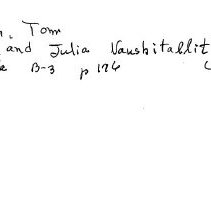 , Tom
and Julia Naushitallit
B-3 p 176